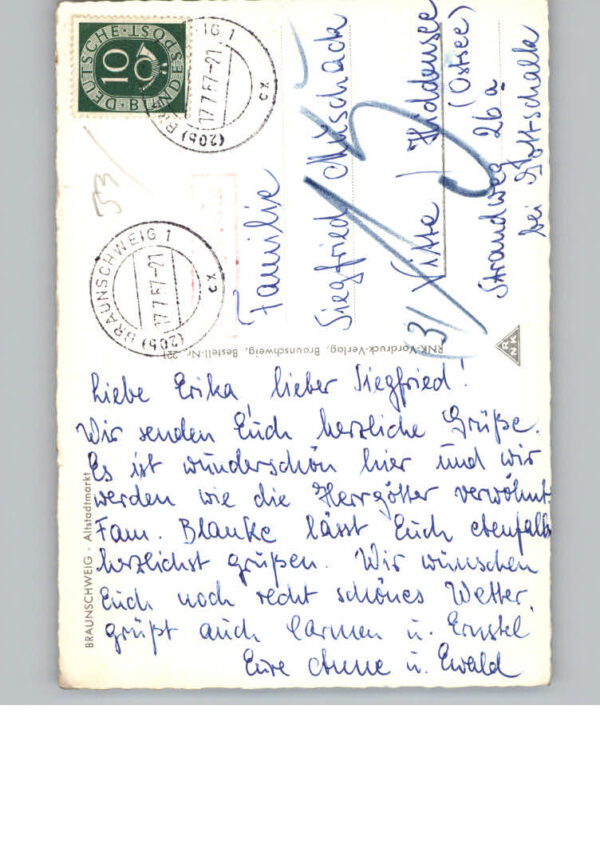 DEUTSCHE BUNDESPOST
10
BRAUNSCHWEIG 1
(20b)
17.7.57-21
cx
BRAUNSCHWEIG 1
(20b)
17.7.57-21
cx
53/
Familie
Siegfried
Vitte / Hiddensee
(Ostsee)
Strandweg 26a
bei Gottschalk
(3
RNK-Vordruck-Verlag, Braunschweig, Bestell-Nr. 221
RNK
BRAUNSCHWEIG · Altstadtmarkt
Liebe Erika, lieber Siegfried!
Wir senden Euch herzliche Grüße.
Es ist wunderschön hier und wir
werden wie die Herrgötter verwöhnt.
Fam. Blanke lässt Euch ebenfalls
herzlichst grüßen. Wir wünschen
Euch noch recht schönes Wetter.
grüßt auch Carmen u. Ernstel
Eure Anne u. Ewald